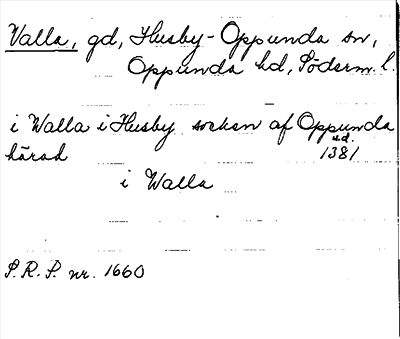 Valla, gd, Husby-Oppunda sn,
Oppunda hd, Söderm. l.
i Walla i Husby socken af Oppunda
härad s.d. 1381
i Walla
S.R.P. nr. 1660